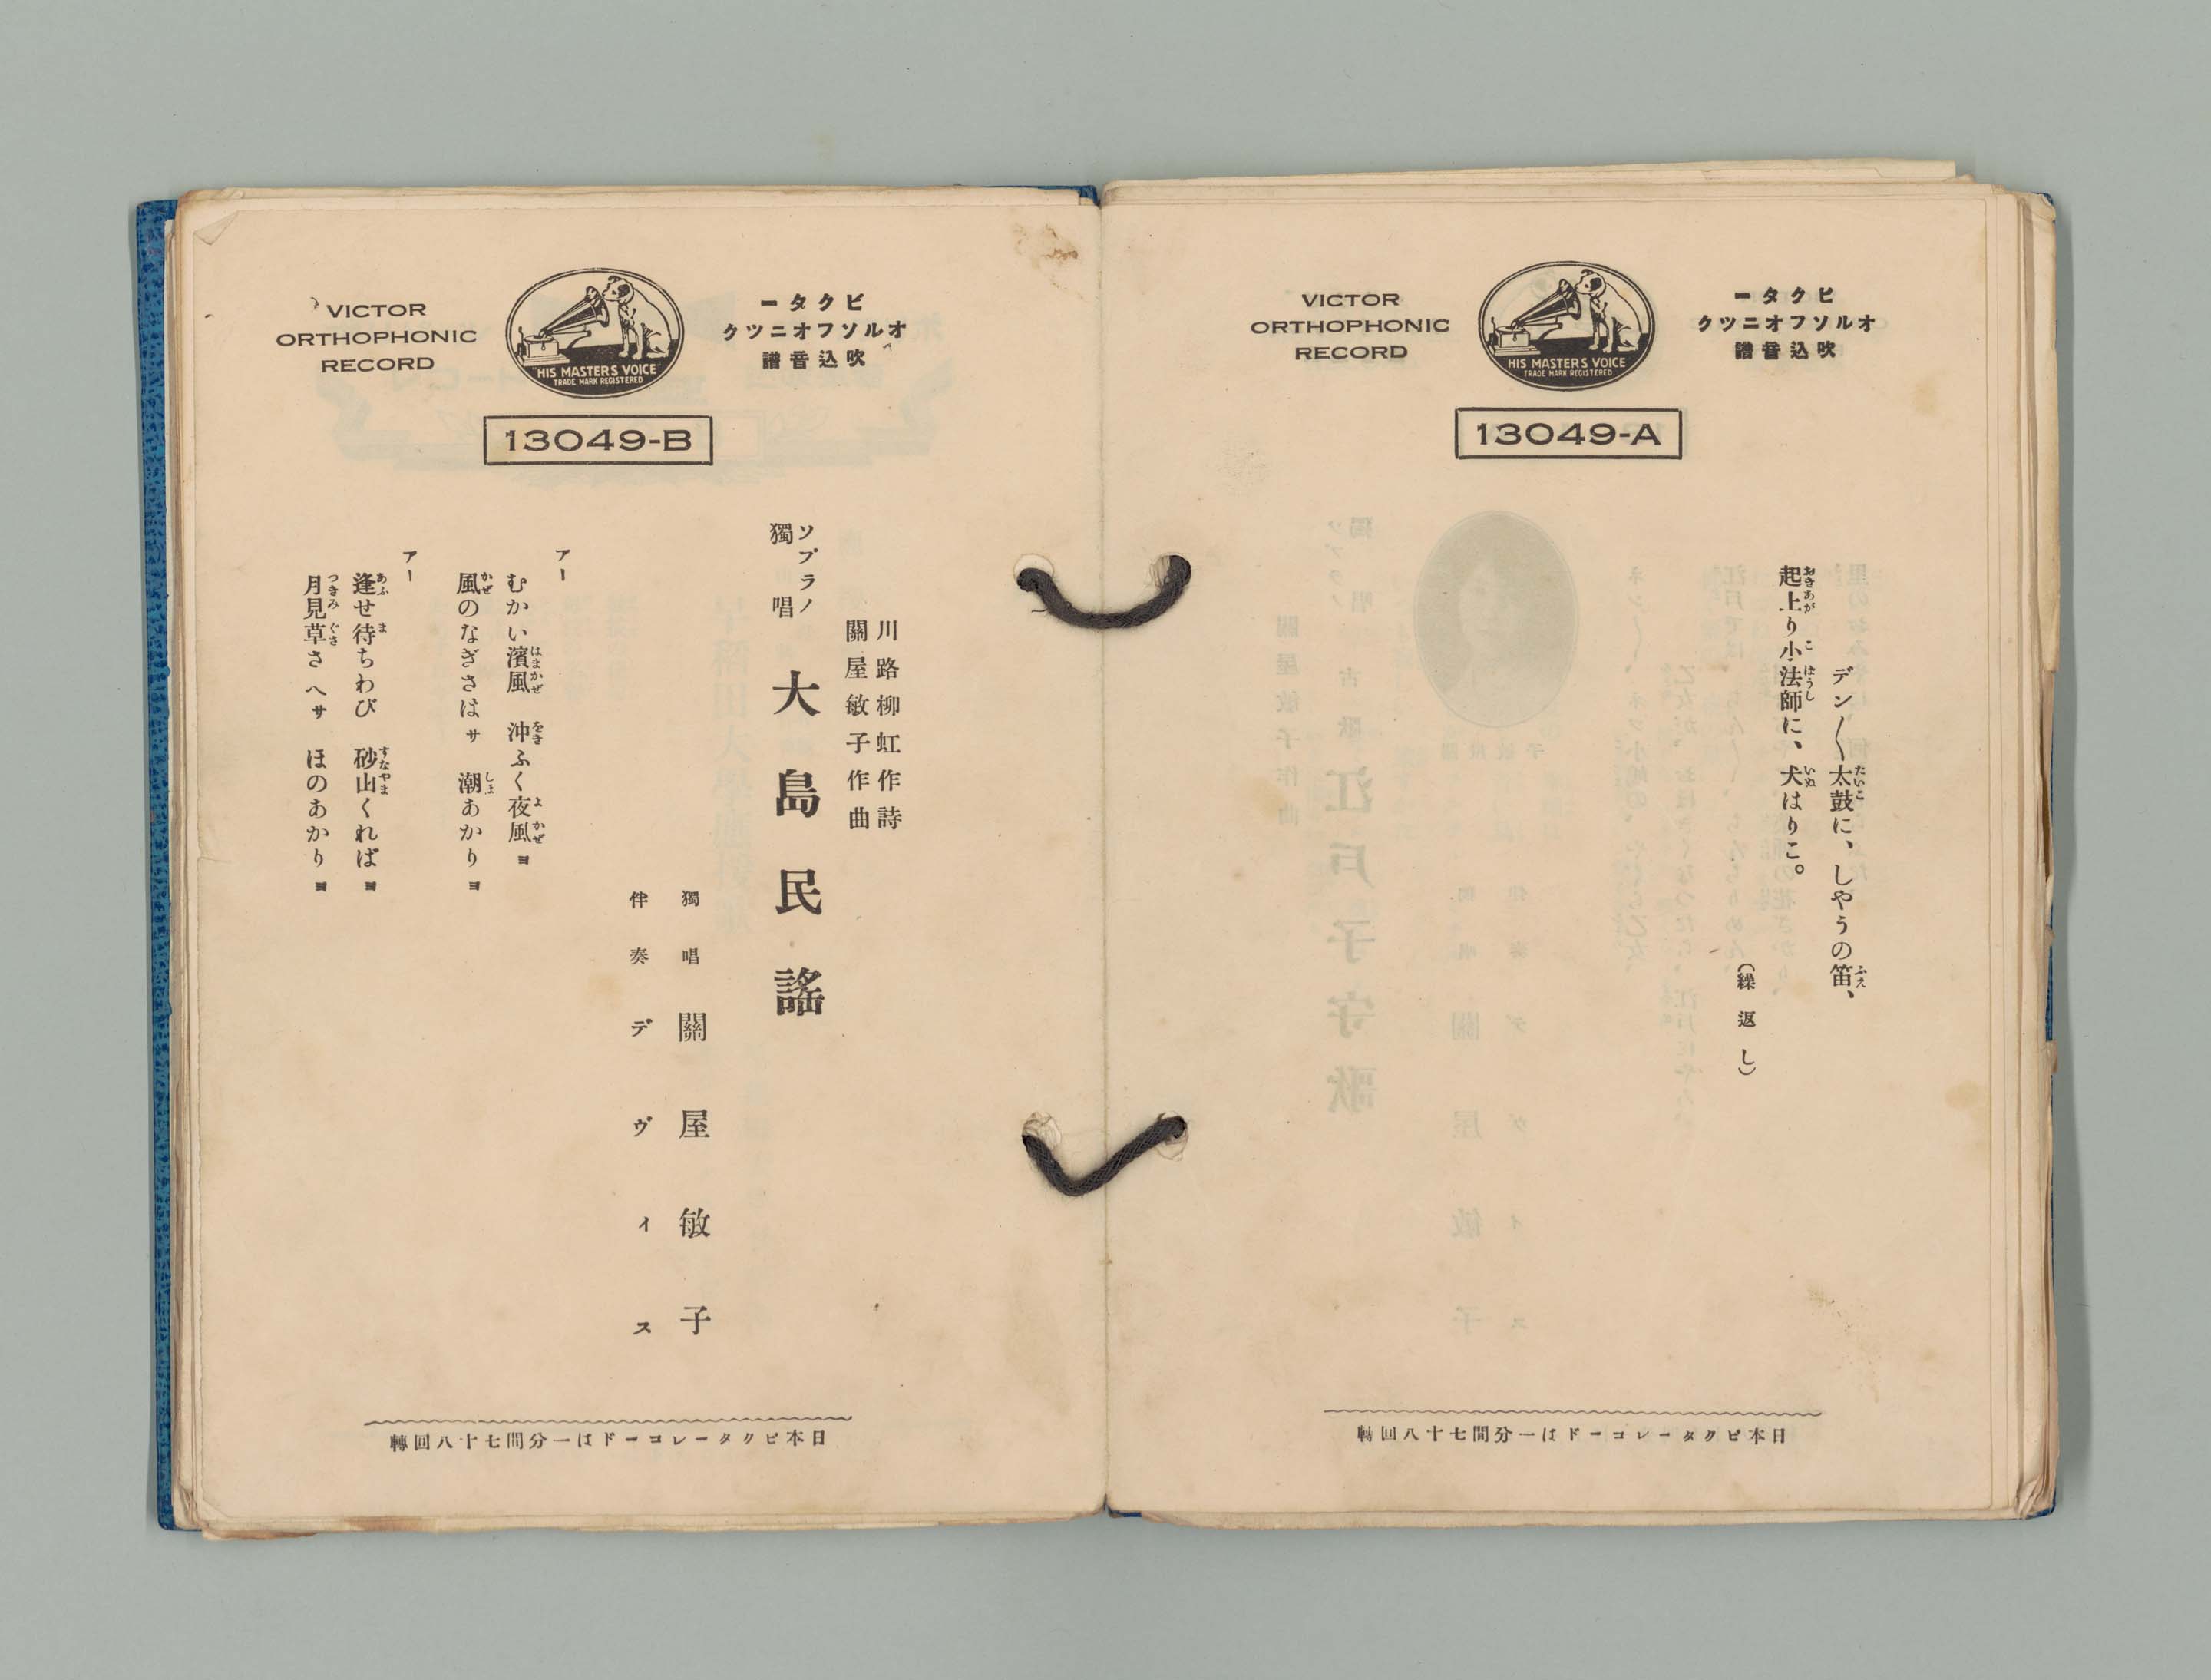 VICTOR
ORTHOPHONIC
RECORD
HIS MASTERS VOICE
TRADE MARK REGISTERED
ビクター
オルソフオニツク
吹込音譜
13049-A
デン〱太鼓に、しやうの笛、
起上り小法師に、犬はりこ。
(繰返し)
日本ビクターレコードは一分間七十八回轉
VICTOR
ORTHOPHONIC
RECORD
HIS MASTERS VOICE
TRADE MARK REGISTERED
ビクター
オルソフオニツク
吹込音譜
13049-B
川路柳虹作詩
關屋敏子作曲
ソプラノ
獨唱
大島民謠
獨唱 關屋敏子
伴奏 デヴィス
アー
むかい濱風 沖ふく夜風ヨ
風のなぎさはサ 潮あかりヨ
アー
逢せ待ちわび 砂山くればヨ
月見草さへサ ほのあかりヨ
日本ビクターレコードは一分間七十八回轉